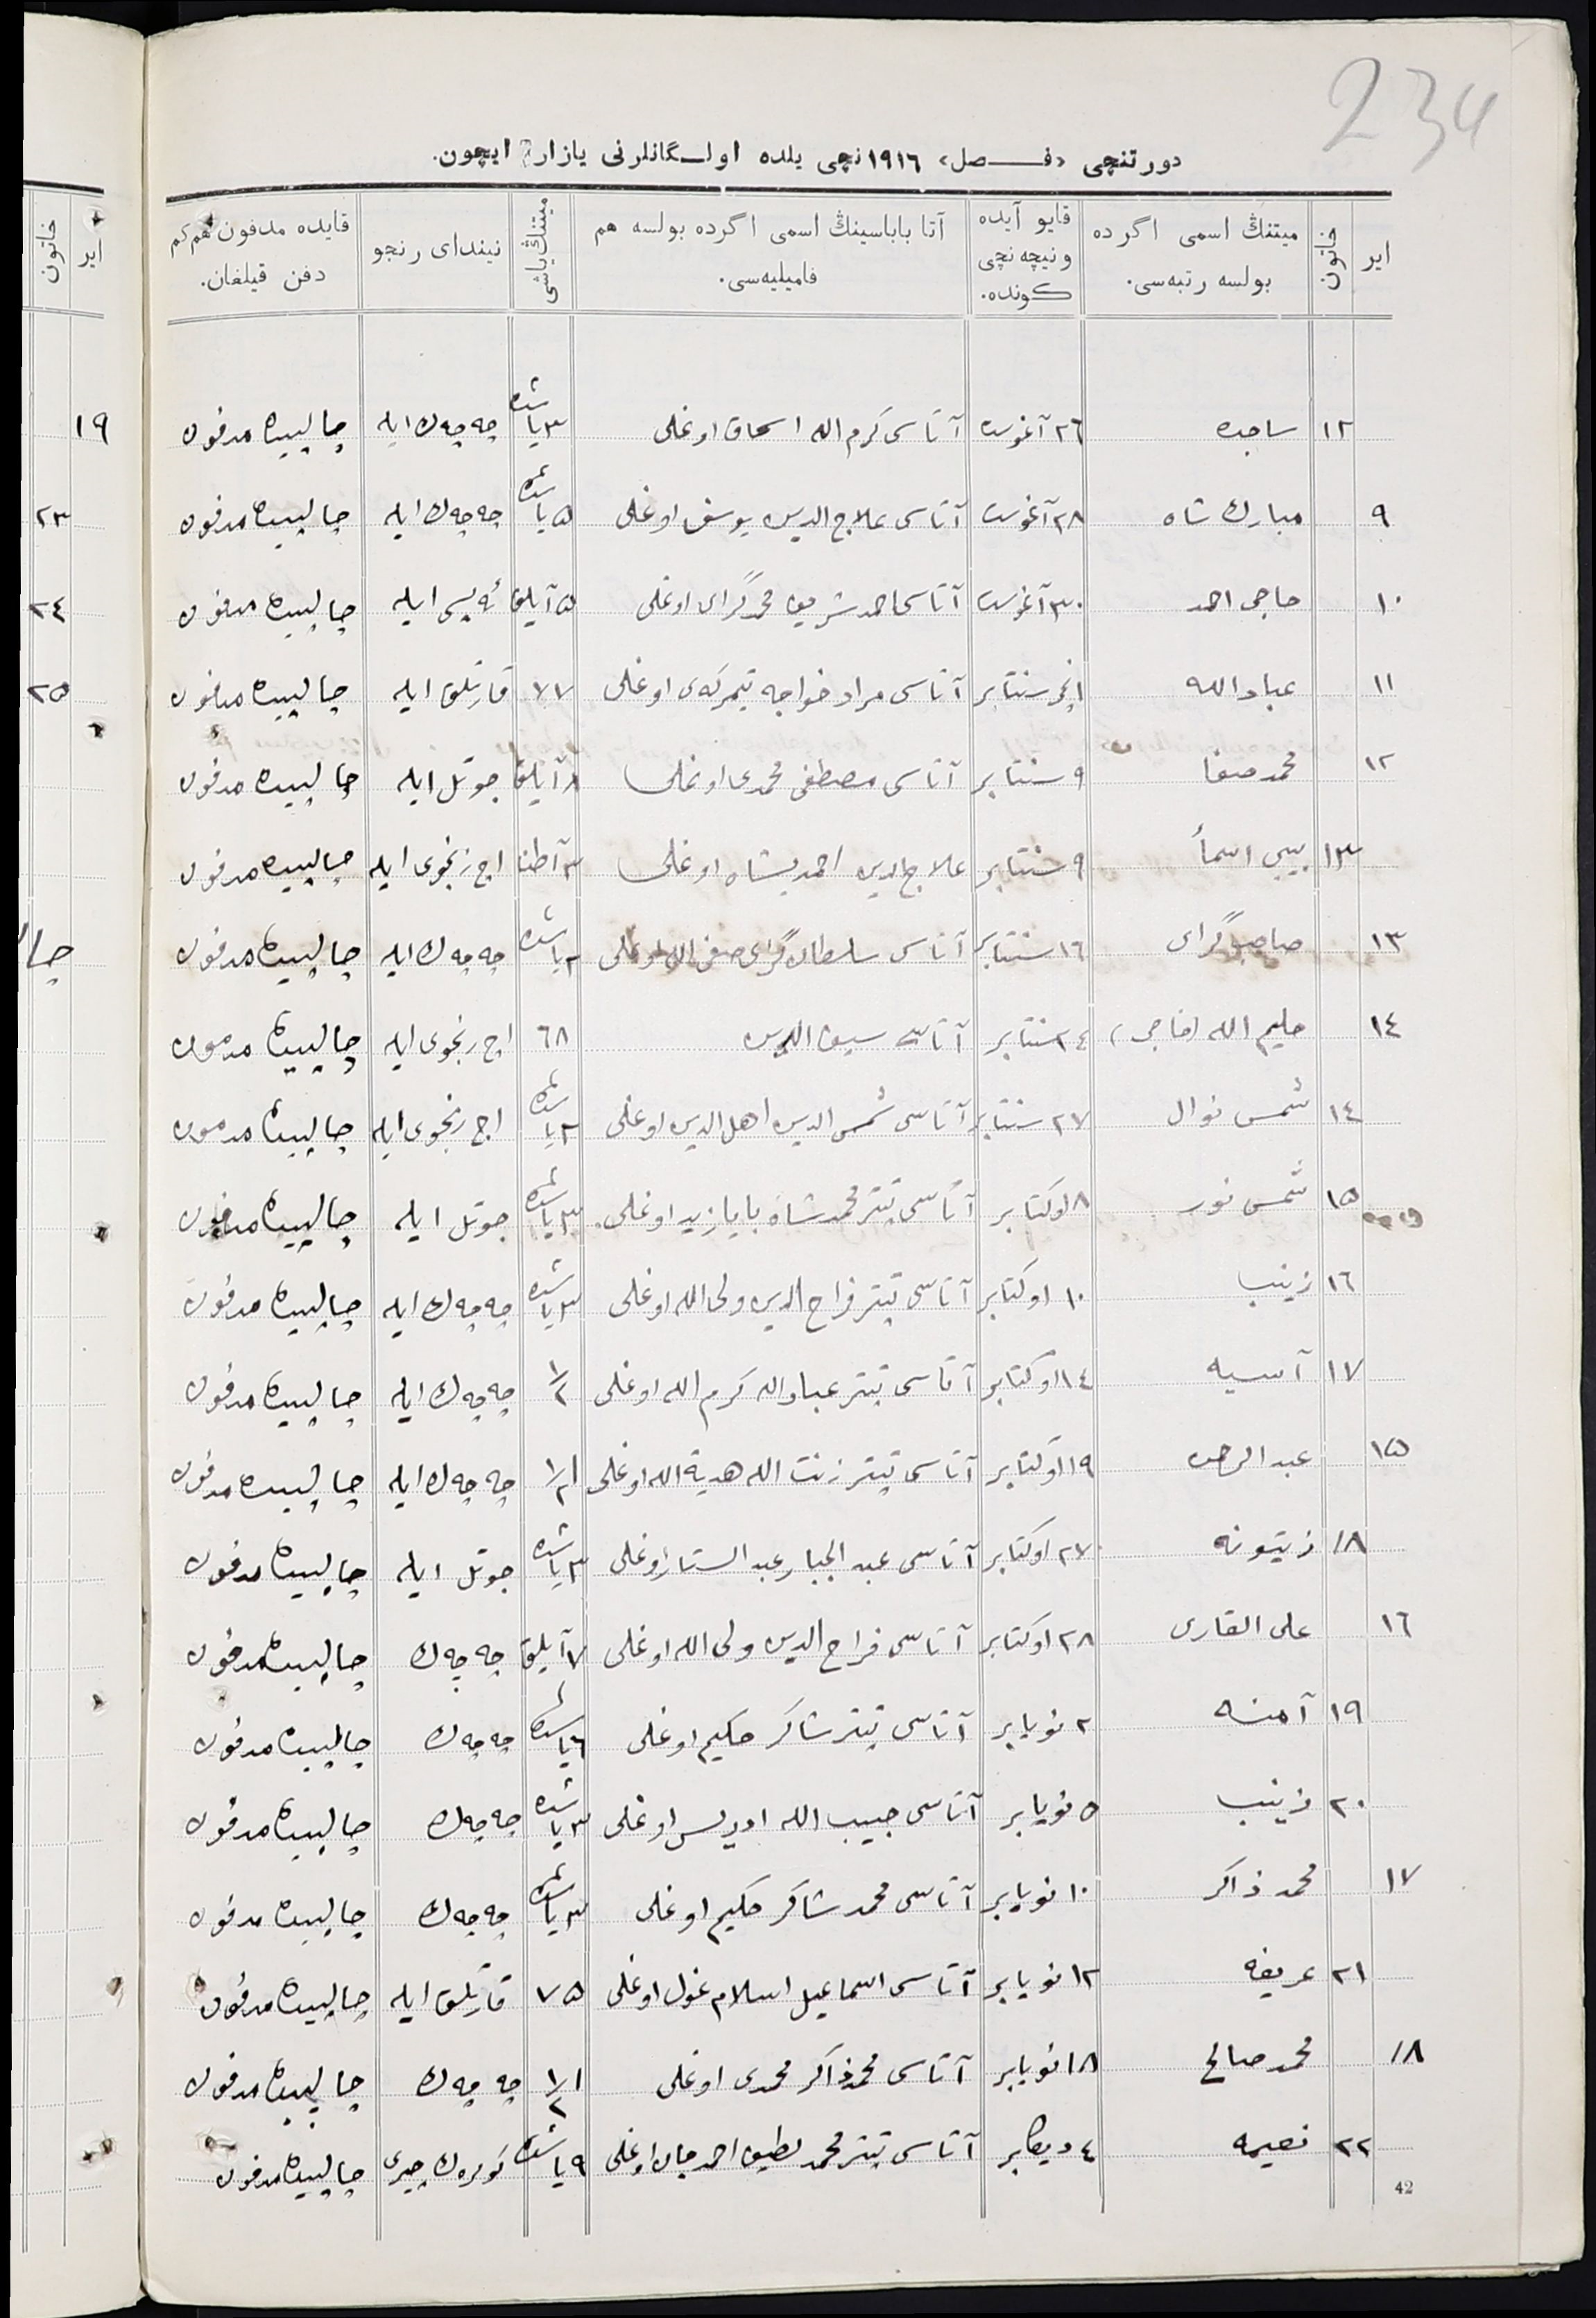 234
دورتنچی «فـصل» ١٩١٦نچی یلده اولـگانلرنی یازار ایچون.
ایر | خاتون | میتنڭ اسمی اگرده بولسه رتبه‌سی. | قایو آیده ونیچه‌نچی کونده. | آتا باباسینڭ اسمی اگرده بولسه هم فامیلیه‌سی. | میتنڭ یاشی | نیندای رنجو | قایده مدفون هم کم دفن قیلغان.
١٢ ساجده ٢٦ آغوست آتاسی کرم الله اسحاق اوغلی ٣ یاشده چه چه ك ایله چالپیده مدفون
٩ مبارك شاه ٢٨ آغوست آتاسی علاج الدین یوسف اوغلی ٥ یاشده چه چه ك ایله چالپیده مدفون
١٠ حاجی احمد ٣٠ آغوست آتاسی احمد شریف محمد گرای اوغلی ٥ آیلق ایله چالپیده مدفون
١١ عباد الله ١نچی سنتابر آتاسی مراد خواجه اوغلی ٧٧ قارتلق ایله چالپیده مدفون
١٢ محمد صفا ٩ سنتابر آتاسی مصطفی محمدی اوغلی ٨ آیلق جوتل ایله چالپیده مدفون
١٣ بیبی اسمأ ٩ سنتابر علاج الدین احمدیشاه اوغلی ٣ آطنا اچ رنجوی ایله چالپیده مدفون
١٣ صاحب گرای ١٦ سنتابر آتاسی سلطان گرای صفی الله اوغلی ٢ یاشده چه چه ك ایله چالپیده مدفون
١٤ حلیم الله (حاجی) ٢٤ سنتابر آتاسی سیف الدین ٦٨ اچ رنجوی ایله چالپیده مدفون
١٤ شمس نوال ٢٧ سنتابر آتاسی شمس الدین اهل الدین اوغلی ٢ یاشده اچ رنجوی ایله چالپیده مدفون
١٥ شمس نور ٨ اوکتابر آتاسی تپتر محمد شاه بایازید اوغلی. ٣ یاشده جوتل ایله چالپیده مدفون
١٦ زینب ١٠ اوکتابر آتاسی تپتر فراح الدین ولی الله اوغلی ٣ یاشده چه چه ك ایله چالپیده مدفون
١٧ آسیه ١٤ اوکتابر آتاسی تپتر عباد الله کرم الله اوغلی ١/٢ چه چه ك ایله چالپیده مدفون
١٥ عبد الرحمن ١٩ اوکتابر آتاسی تپتر زینت الله هدیة الله اوغلی ١ ١/٢ چه چه ك ایله چالپیده مدفون
١٨ زیتونه ٢٧ اوکتابر آتاسی عبد الجبار عبد الستار اوغلی ٣ یاشده جوتل ایله چالپیده مدفون
١٦ علی القاری ٢٨ اوکتابر آتاسی فراح الدین ولی الله اوغلی ٧ آیلق چه چه ك چالپیده مدفون
١٩ آمنه ٢ نویابر آتاسی تپتر شاکر حکیم اوغلی ٦ یاشده چه چه ك چالپیده مدفون
٢٠ زینب ٥ نویابر آتاسی حبیب الله ادریس اوغلی ٣ یاشده چه چه ك چالپیده مدفون
١٧ محمد ذاکر ١٠ نویابر آتاسی محمد شاکر حکیم اوغلی ٣ یاشده چه چه ك چالپیده مدفون
٢١ عریفه ١٢ نویابر آتاسی اسماعیل اسلام غول اوغلی ٧٥ قارتلق ایله چالپیده مدفون
١٨ محمد صالح ١٨ نویابر آتاسی محمد ذاکر محمدی اوغلی ١ ١/٢ چه چه ك چالپیده مدفون
٢٢ نعیمه ٤ دیکابر آتاسی تپتر محمد لطیف احمد جان اوغلی ٩ یاشده کوکره ك چیری چالپیده مدفون
42
خاتون ایر
١٩
٢٣
٢٤
٢٥